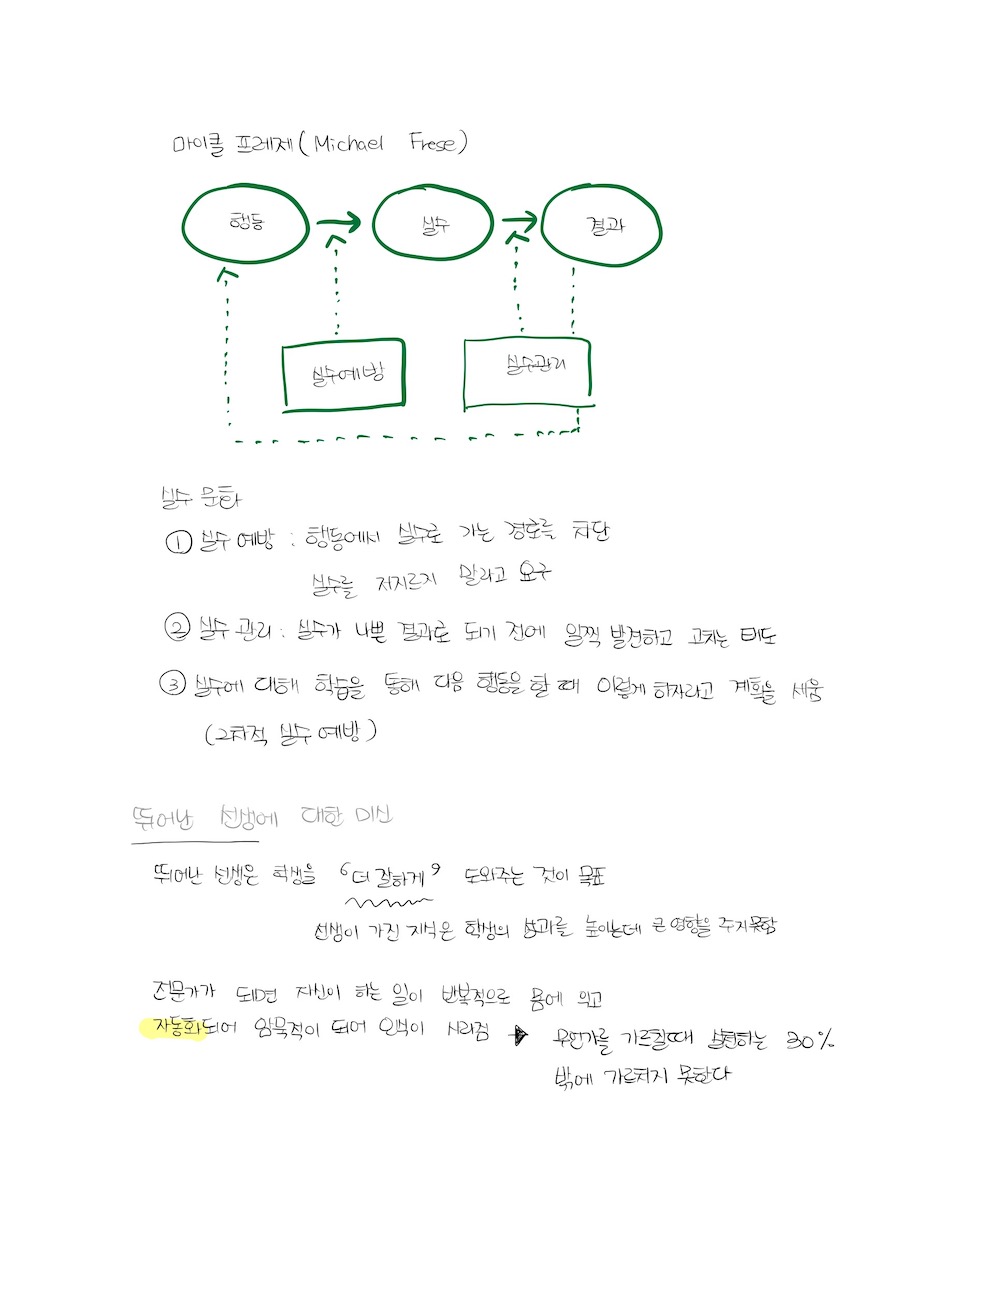 마이클 프레제(Michael Frese)
행동
실수
결과
실수예방
실수관리
실수 문화
① 실수 예방 : 행동에서 실수로 가는 경로를 차단
실수를 저지르지 말라고 요구
② 실수 관리 : 실수가 나쁜 결과로 되기 전에 일찍 발견하고 고치는 태도
③ 실수에 대해 학습을 통해 다음 행동을 할 때 이렇게 하자라고 계획을 세움
(2차적 실수 예방)
뛰어난 선생에 대한 미신
뛰어난 선생은 학생을 "더 잘하게" 도와주는 것이 목표
선생이 가진 지식은 학생의 성과를 높이는데 큰 영향을 주지못함
전문가가 되면 자신이 하는 일이 반복적으로 몸에 익고
자동화되어 암묵적이 되어 인식이 사라짐 → 무언가를 가르칠때 설명하는 30%
밖에 가르쳐지 못한다